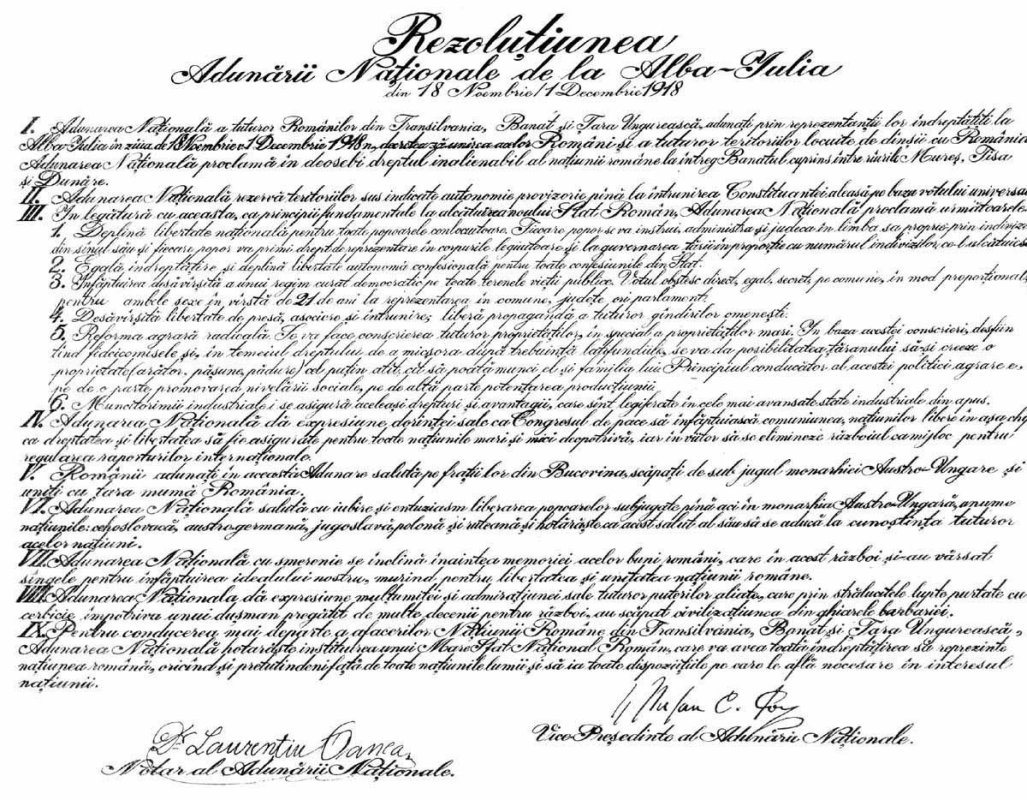 Rezoluțiunea
Adunării Naționale de la Alba-Iulia
din 18 Noembrie/1 Decembrie 1918
I. Adunarea Națională a tuturor Românilor din Transilvania, Banat și Țara Ungurească, adunați prin reprezentanții lor îndreptățiți la
Alba-Iulia în ziua de 18 Noembrie/1 Decembrie 1918, decretează unirea acelor Români și a tuturor teritoriilor locuite de dînșii cu România.
Adunarea Națională proclamă îndeosebi dreptul inalienabil al națiunii române la întreg Banatul cuprins între rîurile Mureș, Tisa
și Dunăre.
II. Adunarea Națională rezervă teritoriilor sus indicate autonomie provizorie pînă la întrunirea Constituantei aleasă pe baza votului universal
III. În legătură cu aceasta, ca principii fundamentale la alcătuirea noului Stat Român, Adunarea Națională proclamă următoarele
1. Deplină libertate națională pentru toate popoarele conlocuitoare. Fiecare popor se va instrui, administra și judeca în limba sa proprie prin indivizi
din sînul său și fiecare popor va primi drept de reprezentare în corpurile legiuitoare și la guvernarea țării în proporție cu numărul indivizilor ce-l alcătuiesc
2. Egală îndreptățire și deplină libertate autonomă confesională pentru toate confesiunile din Stat.
3. Înfăptuirea desăvîrșită a unui regim curat democratic pe toate terenele vieții publice. Votul obștesc direct, egal, secret, pe comune, în mod proporțional,
pentru ambele sexe, în vîrstă de 21 de ani la reprezentarea în comune, județe ori parlament.
4. Desăvîrșită libertate de presă, asociere și întrunire; liberă propagandă a tuturor gîndirilor omenești.
5. Reforma agrară radicală. Se va face conscrierea tuturor proprietăților, în special a proprietăților mari. În baza acestei conscrieri, desfiin
țînd fideicomisele și, în temeiul dreptului de a micșora după trebuință latifundiile, se va da posibilitatea țăranului să-și creeze o
proprietate (arător, pășune, pădure) cel puțin atît cît să poată munci el și familia lui. Principiul conducător al acestei politici agrare e,
pe de o parte promovarea nivelării sociale, pe de altă parte potențarea producțiunii.
6. Muncitorimii industriale i se asigură aceleași drepturi și avantagii, care sînt legiferate în cele mai avansate state industriale din apus.
IV. Adunarea Națională dă expresiune dorinței sale ca Congresul de pace să înfăptuiască comuniunea națiunilor libere în așa chip
ca dreptatea și libertatea să fie asigurate pentru toate națiunile mari și mici deopotrivă, iar în viitor să se elimineze războiul ca mijloc pentru
regularea raporturilor internaționale.
V. Românii adunați în această Adunare salută pe frații lor din Bucovina, scăpați de sub jugul monarhiei Austro-Ungare și
uniți cu țara mumă România.
VI. Adunarea Națională salută cu iubire și entuziasm liberarea popoarelor subjugate pînă aci în monarhia Austro-Ungară, anume
națiunile: cehoslovacă, austrogermană, jugoslavă, polonă și ruteană și hotărăște ca acest salut al său să se aducă la cunoștința tuturor
acelor națiuni.
VII. Adunarea Națională cu smerenie se înclină înaintea memoriei acelor buni români, care în acest război și-au vărsat
sîngele pentru înfăptuirea idealului nostru, murind pentru libertatea și unitatea națiunii române.
VIII. Adunarea Națională dă expresiune mulțumitei și admirațiunei sale tuturor puterilor aliate, care prin strălucitele lupte purtate cu
cerbicie împotriva unui dușman pregătit de multe decenii pentru război, au scăpat civilizațiunea din ghiarele barbariei.
IX. Pentru conducerea mai departe a afacerilor Națiunii Române din Transilvania, Banat și Țara Ungurească,
Adunarea Națională hotărăște instituirea unui Mare Sfat Național Român, care va avea toată îndreptățirea să reprezinte
națiunea română, oricînd și pretutindeni față de toate națiunile lumii și să ia toate dispozițiile pe care le află necesare în interesul
națiunii.
Vice-Președinte al Adunării Naționale.
Dr Laurențiu Oanea
Notar al Adunării Naționale.